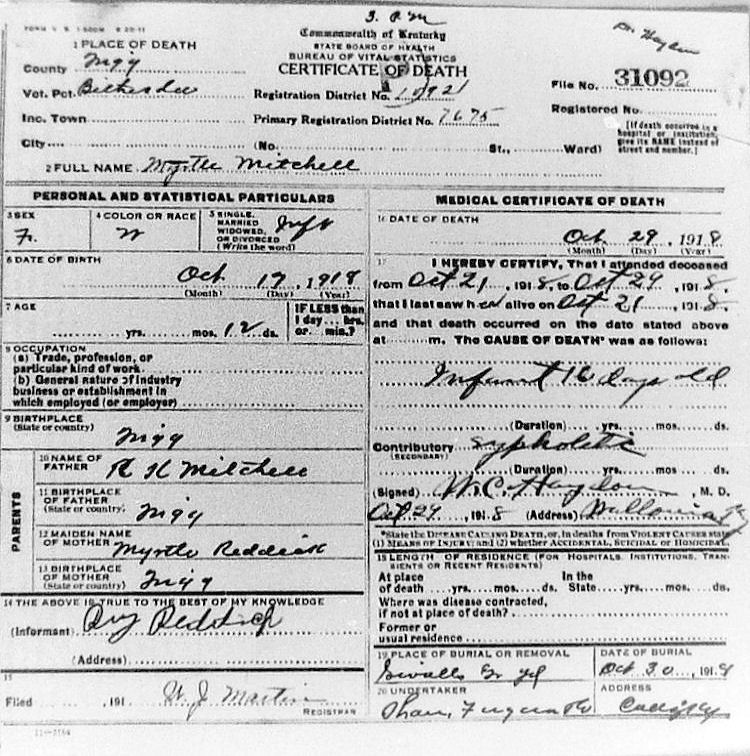 Dr Haydon
Commonwealth of Kentucky
STATE BOARD OF HEALTH
BUREAU OF VITAL STATISTICS
CERTIFICATE OF DEATH
1 PLACE OF DEATH
County Trigg
Vot. Pct. Bethesda
Inc. Town
City
Registration District No.
Primary Registration District No. 7675
(No. St., Ward)
File No. 31092
Registered No.
[If death occurred in a
hospital or institution,
give its NAME instead of
street and number.]
2 FULL NAME Myrtle Mitchell
PERSONAL AND STATISTICAL PARTICULARS
3 SEX
F.
4 COLOR OR RACE
W
5 SINGLE,
MARRIED
WIDOWED,
OR DIVORCED
(Write the word)
Inft
6 DATE OF BIRTH
Oct 17, 1918
(Month) (Day) (Year)
7 AGE
yrs. mos. 12 ds.
IF LESS than
1 day... hrs.
or... min.?
8 OCCUPATION
(a) Trade, profession, or
particular kind of work
(b) General nature of industry
business or establishment in
which employed (or employer)
9 BIRTHPLACE
(State or country)
Trigg
PARENTS
10 NAME OF
FATHER R H Mitchell
11 BIRTHPLACE
OF FATHER
(State or country) Trigg
12 MAIDEN NAME
OF MOTHER Myrtle Reddick
13 BIRTHPLACE
OF MOTHER
(State or country) Trigg
14 THE ABOVE IS TRUE TO THE BEST OF MY KNOWLEDGE
(Informant) Reddick
(Address)
15
Filed , 191 W. J. Martin
REGISTRAR
MEDICAL CERTIFICATE OF DEATH
16 DATE OF DEATH
Oct 29, 1918
(Month) (Day) (Year)
17 I HEREBY CERTIFY, That I attended deceased
from Oct 21, 1918, to Oct 29, 1918.
that I last saw her alive on Oct 21, 1918.
and that death occurred on the date stated above
at m. The CAUSE OF DEATH* was as follows:
Infant days old
(Duration) yrs. mos. ds.
Contributory sypholetic
(SECONDARY)
(Duration) yrs. mos. ds.
(Signed) W. C. Haydon, M. D.
Oct 29, 1918 (Address) Wallonia Ky
*State the DISEASE CAUSING DEATH, or, in deaths from VIOLENT CAUSES state
(1) MEANS OF INJURY; and (2) whether ACCIDENTAL, SUICIDAL or HOMICIDAL.
18 LENGTH OF RESIDENCE (FOR HOSPITALS, INSTITUTIONS, TRAN-
SIENTS OR RECENT RESIDENTS)
At place In the
of death yrs. mos. ds. State yrs. mos. ds.
Where was disease contracted,
if not at place of death?
Former or
usual residence
19 PLACE OF BURIAL OR REMOVAL
DATE OF BURIAL
Oct 30, 1918
20 UNDERTAKER
ADDRESS
Cadiz Ky